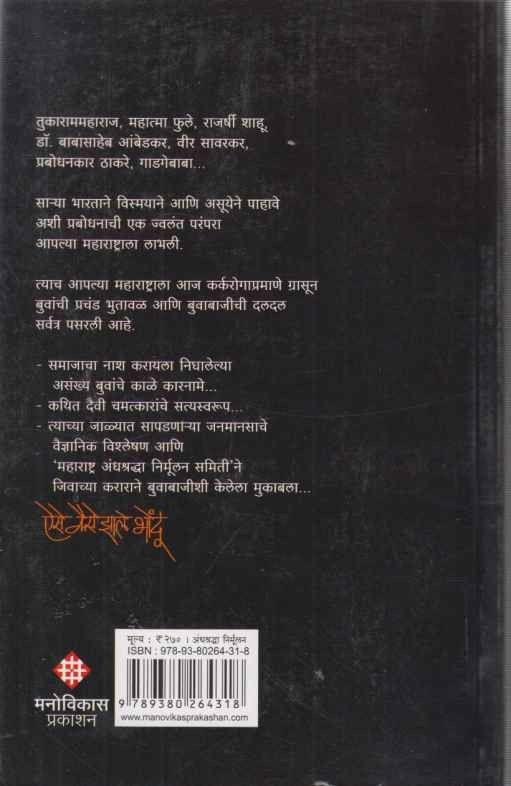 तुकाराममहाराज, महात्मा फुले, राजर्षी शाहू,
डॉ. बाबासाहेब आंबेडकर, वीर सावरकर,
प्रबोधनकार ठाकरे, गाडगेबाबा...
साऱ्या भारताने विस्मयाने आणि असूयेने पाहावे
अशी प्रबोधनाची एक ज्वलंत परंपरा
आपल्या महाराष्ट्राला लाभली.
त्याच आपल्या महाराष्ट्राला आज कर्करोगाप्रमाणे ग्रासून
बुवांची प्रचंड भुतावळ आणि बुवाबाजीची दलदल
सर्वत्र पसरली आहे.
- समाजाचा नाश करायला निघालेल्या
असंख्य बुवांचे काळे कारनामे...
- कथित दैवी चमत्कारांचे सत्यस्वरूप...
- त्याच्या जाळ्यात सापडणाऱ्या जनमानसाचे
वैज्ञानिक विश्लेषण आणि
'महाराष्ट्र अंधश्रद्धा निर्मूलन समिती'ने
जिवाच्या कराराने बुवाबाजीशी केलेला मुकाबला...
ऐसे कैसे झाले भोंदू
मूल्य : ₹ २७० । अंधश्रद्धा निर्मूलन
ISBN : 978-93-80264-31-8
9 789380 264318
www.manovikasprakashan.com
मनोविकास
प्रकाशन